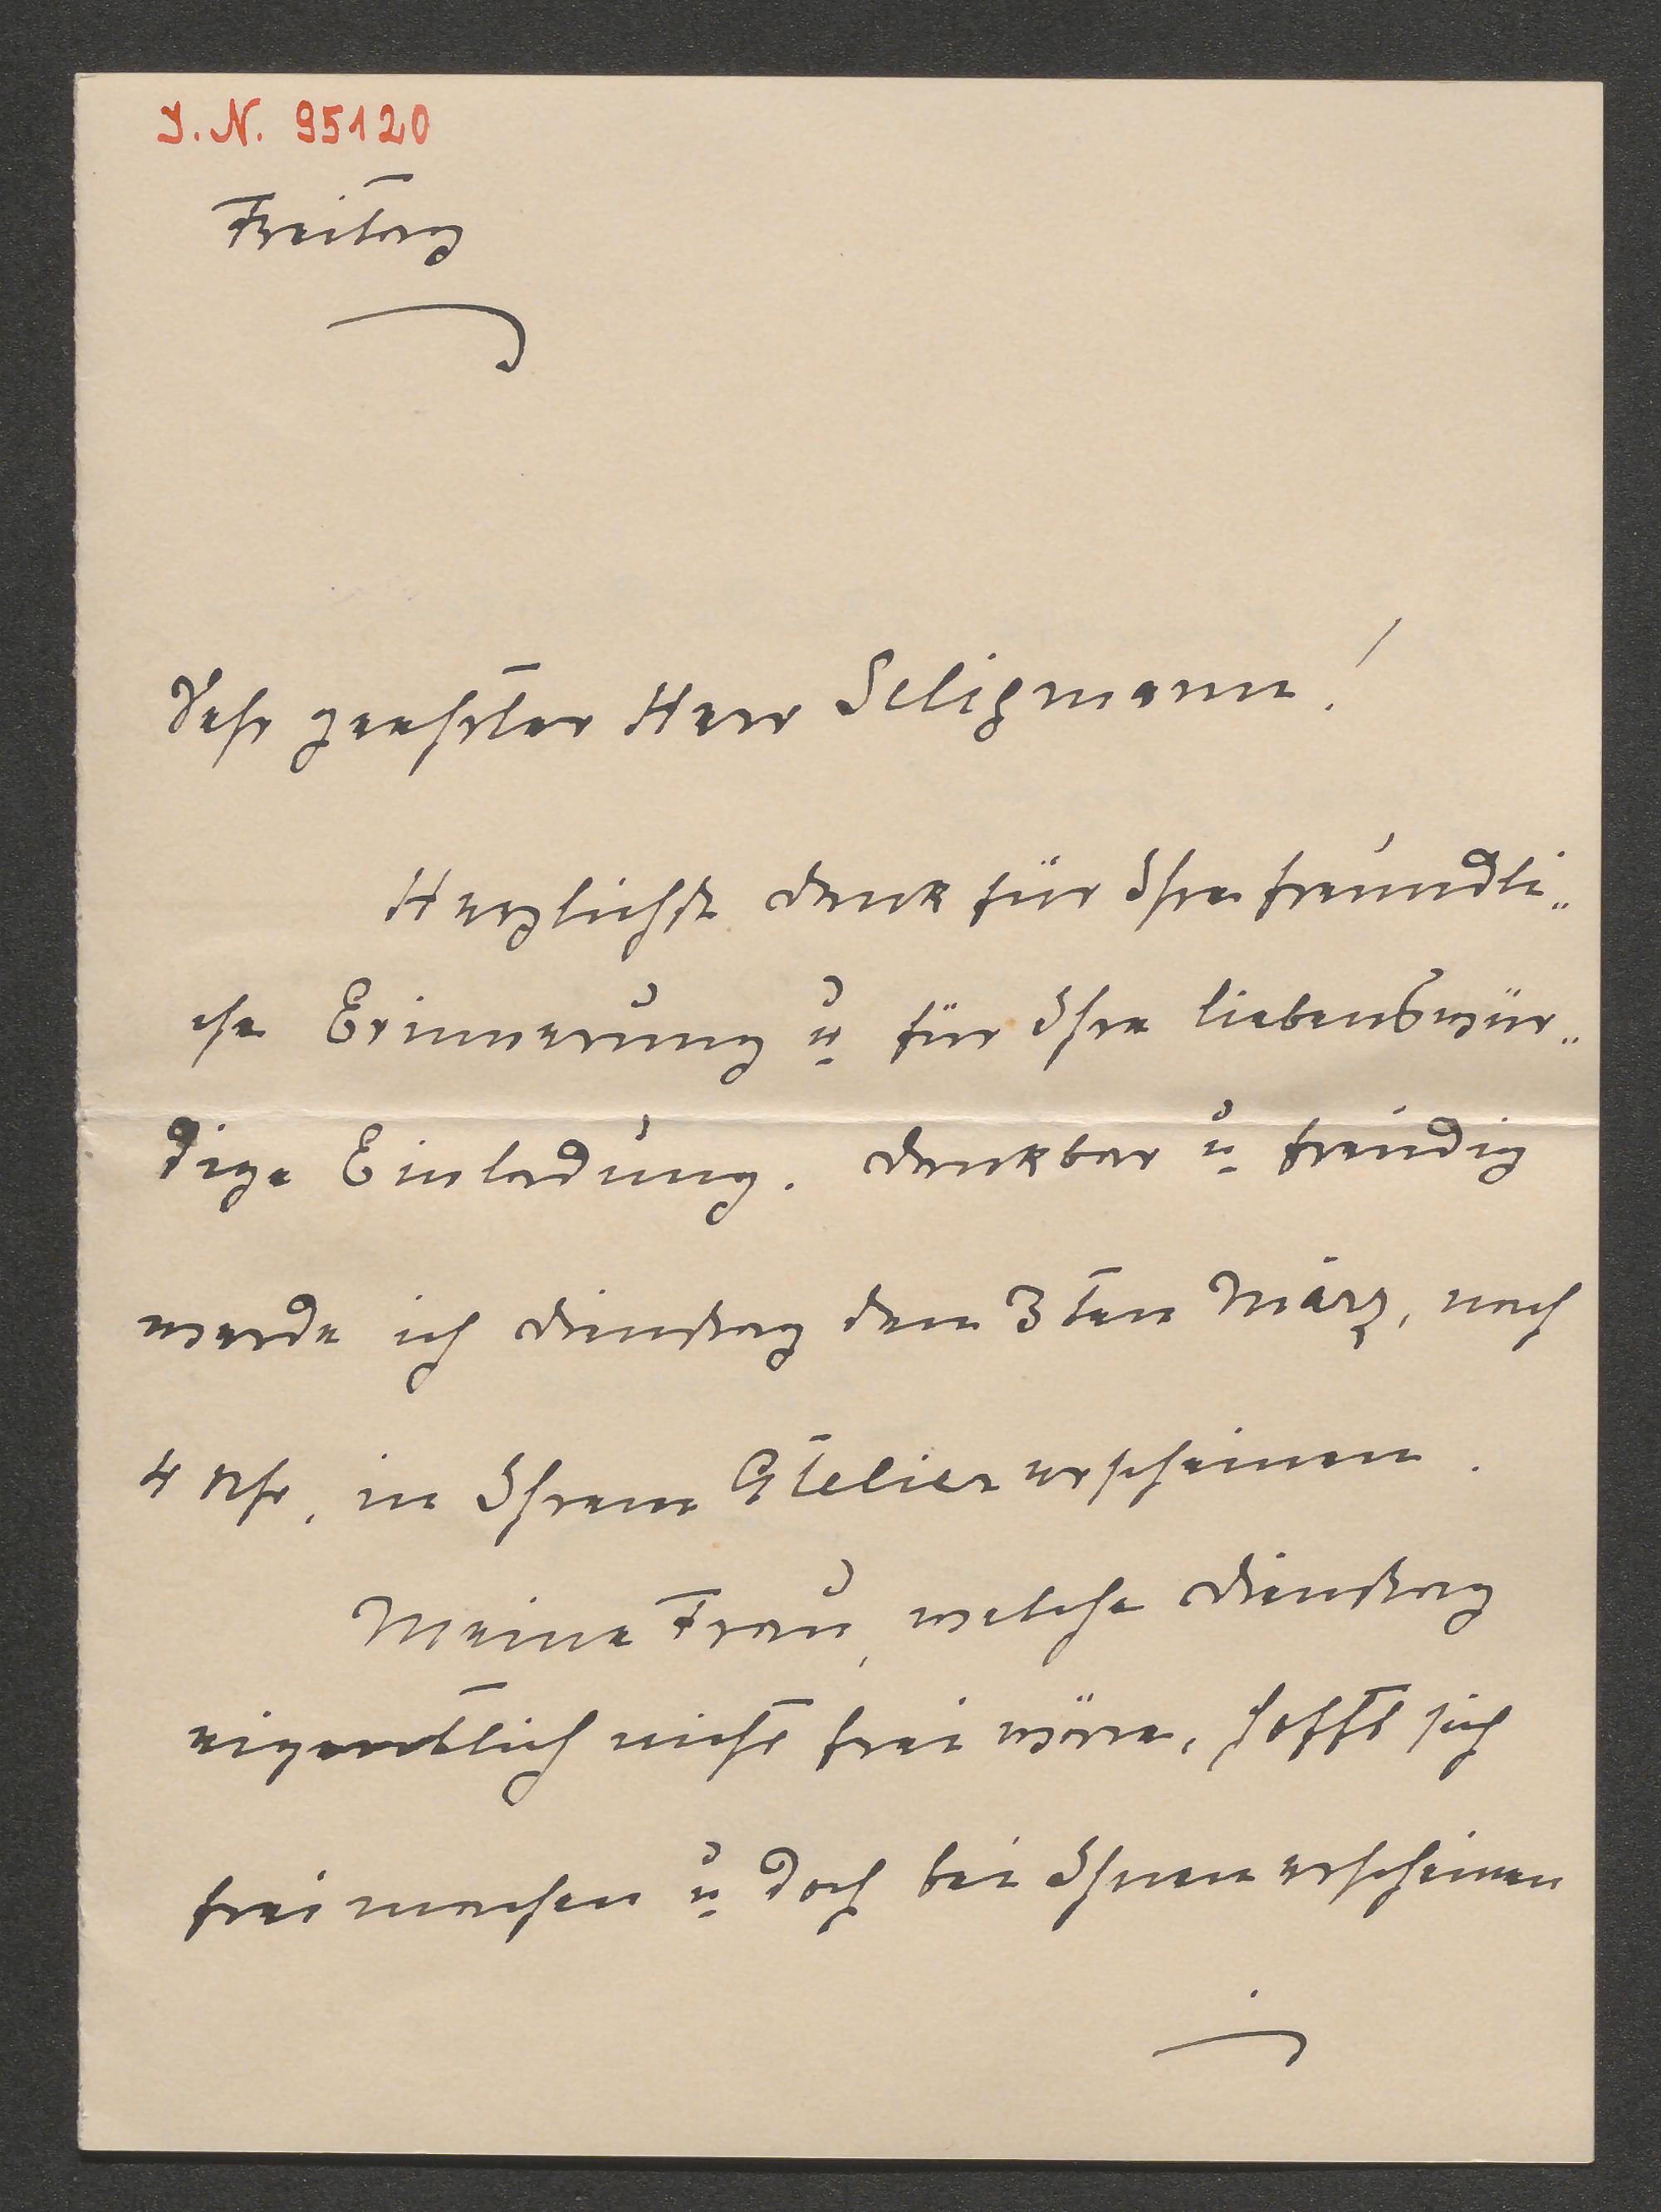 I. N. 95120
Freitag
Sehr geehrter Herr Seligmann!
Herzlichst Dank für Ihre freundli„
che Erinnerung u für Ihre liebenswür„
dige Einladung. Dankbar u freudig
werde ich Dienstag den 3ten März, nach
4 Uhr, in Ihrem Atelier erscheinen.
Meine Frau, welche Dienstag
eigentlich nicht frei wäre, hofft sich
frei machen u doch bei Ihnen erscheinen